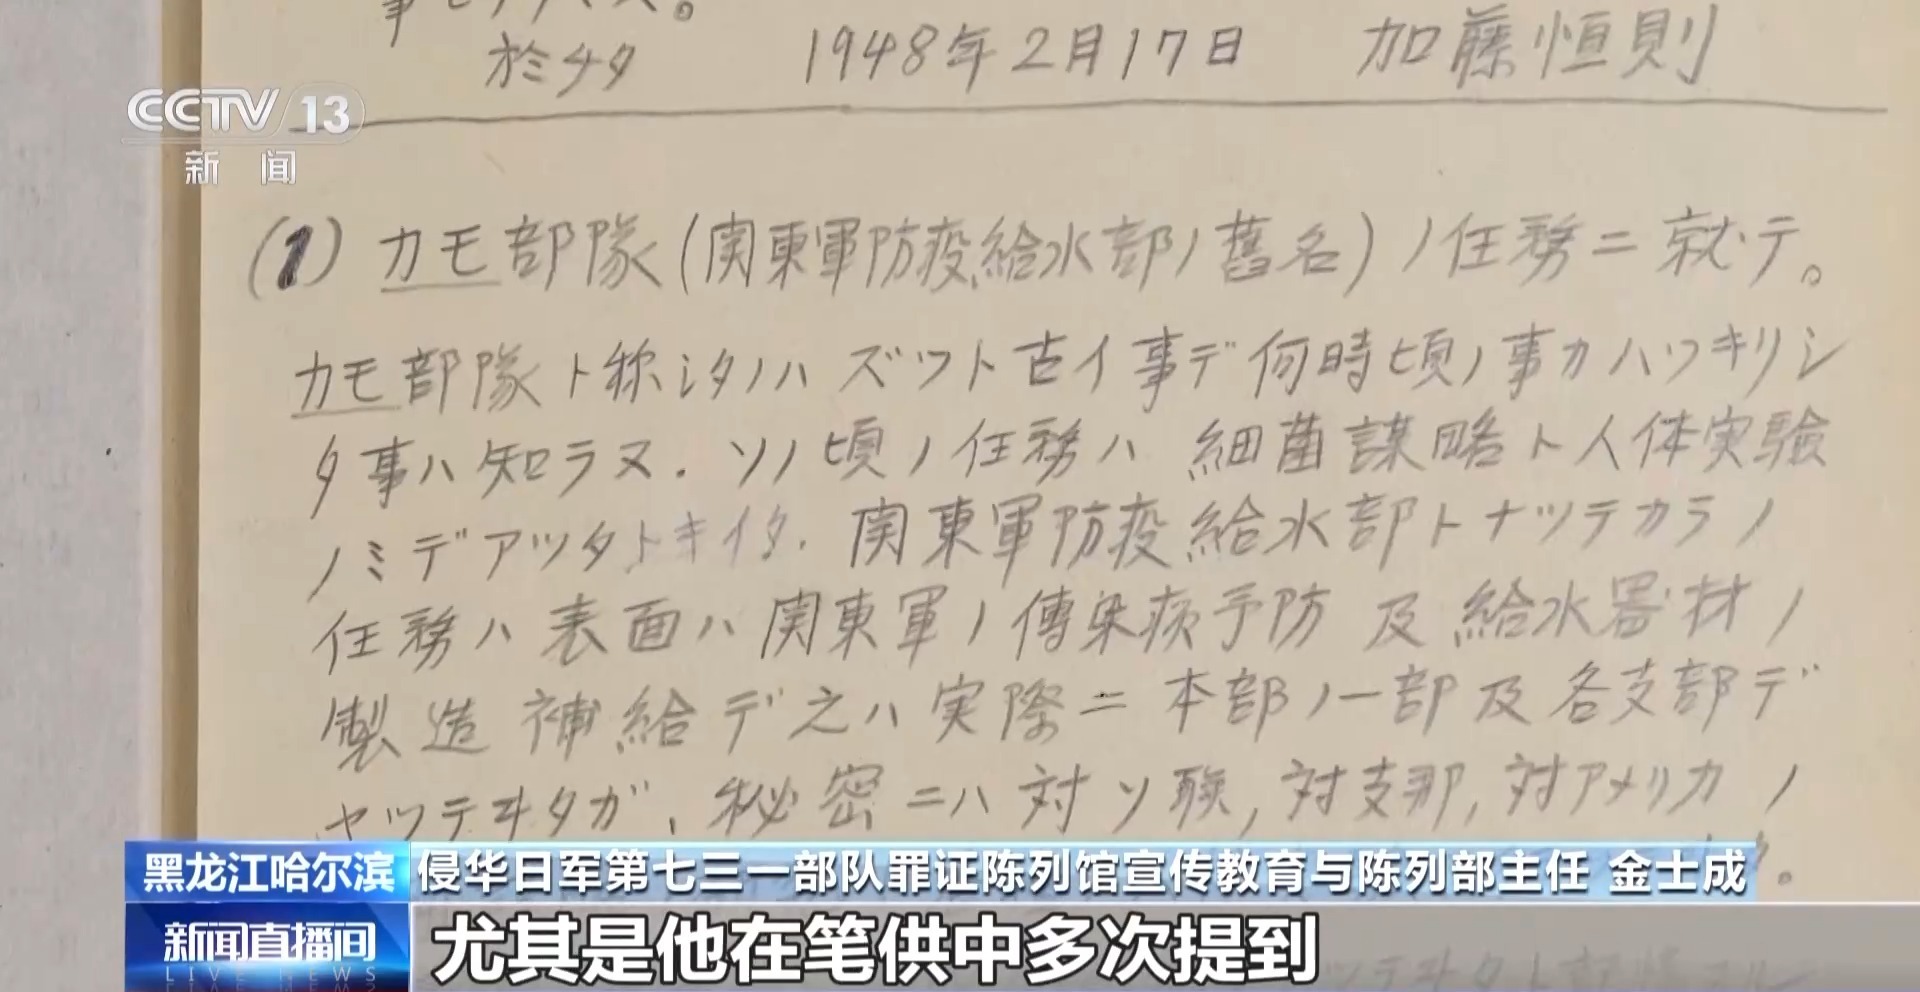 於チタ 1948年2月17日 加藤恒則
CCTV 13
新闻
(1) カモ部隊(関東軍防疫給水部ノ舊名)ノ任務ニ就テ。
カモ部隊ト称シタノハズツト古イ事デ何時頃ノ事カハツキリシ
タ事ハ知ラヌ.ソノ頃ノ任務ハ細菌謀略ト人体実験
ノミデアツタトキイタ.関東軍防疫給水部トナツテカラノ
任務ハ表面ハ関東軍ノ傳染病予防及給水器材ノ
製造補給デ之ハ実際ニ本部ノ一部及各支部デ
ヤツテヰタガ、秘密ニハ対ソ聯,対支那,対アメリカノ
黑龙江哈尔滨 侵华日军第七三一部队罪证陈列馆宣传教育与陈列部主任 金士成
新闻直播间
LIVE NEWS
尤其是他在笔供中多次提到